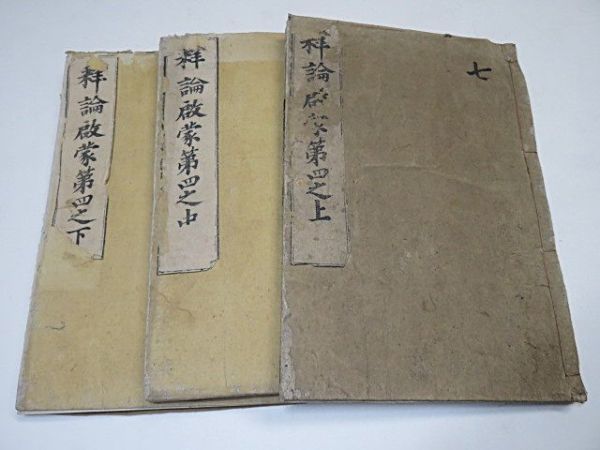 七
釋論啟蒙第四之上
釋論啟蒙第四之中
釋論啟蒙第四之下